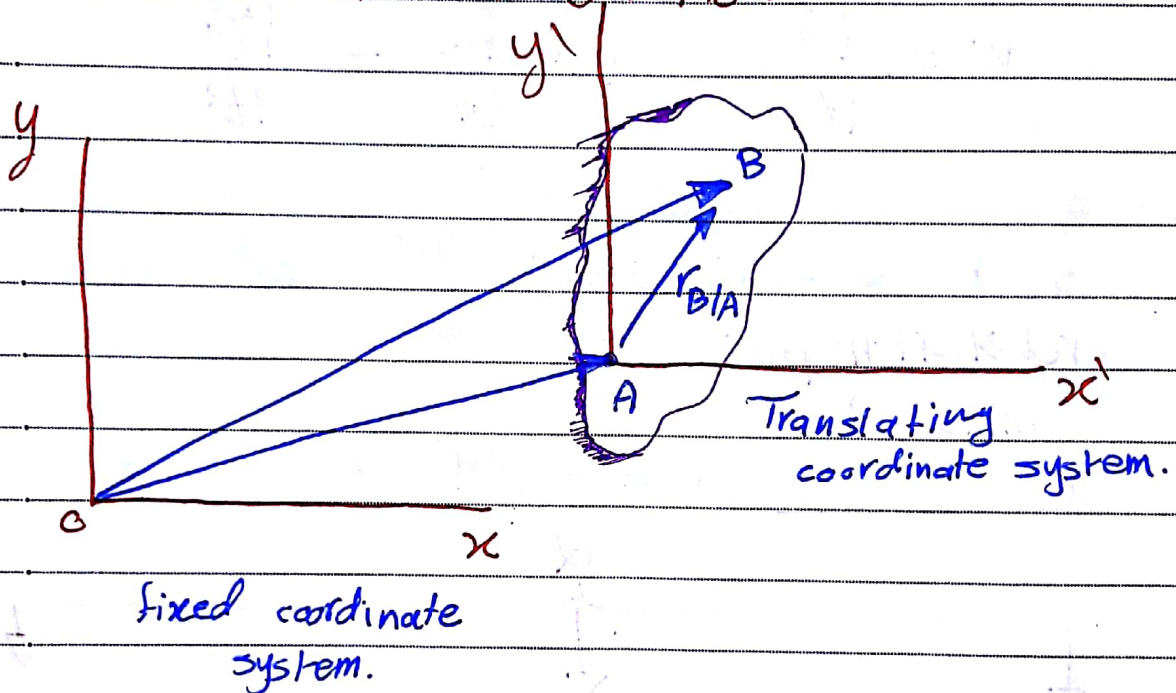 y'
y
B
r_B/A
A
x'
Translating
coordinate system.
O
x
fixed coordinate
system.